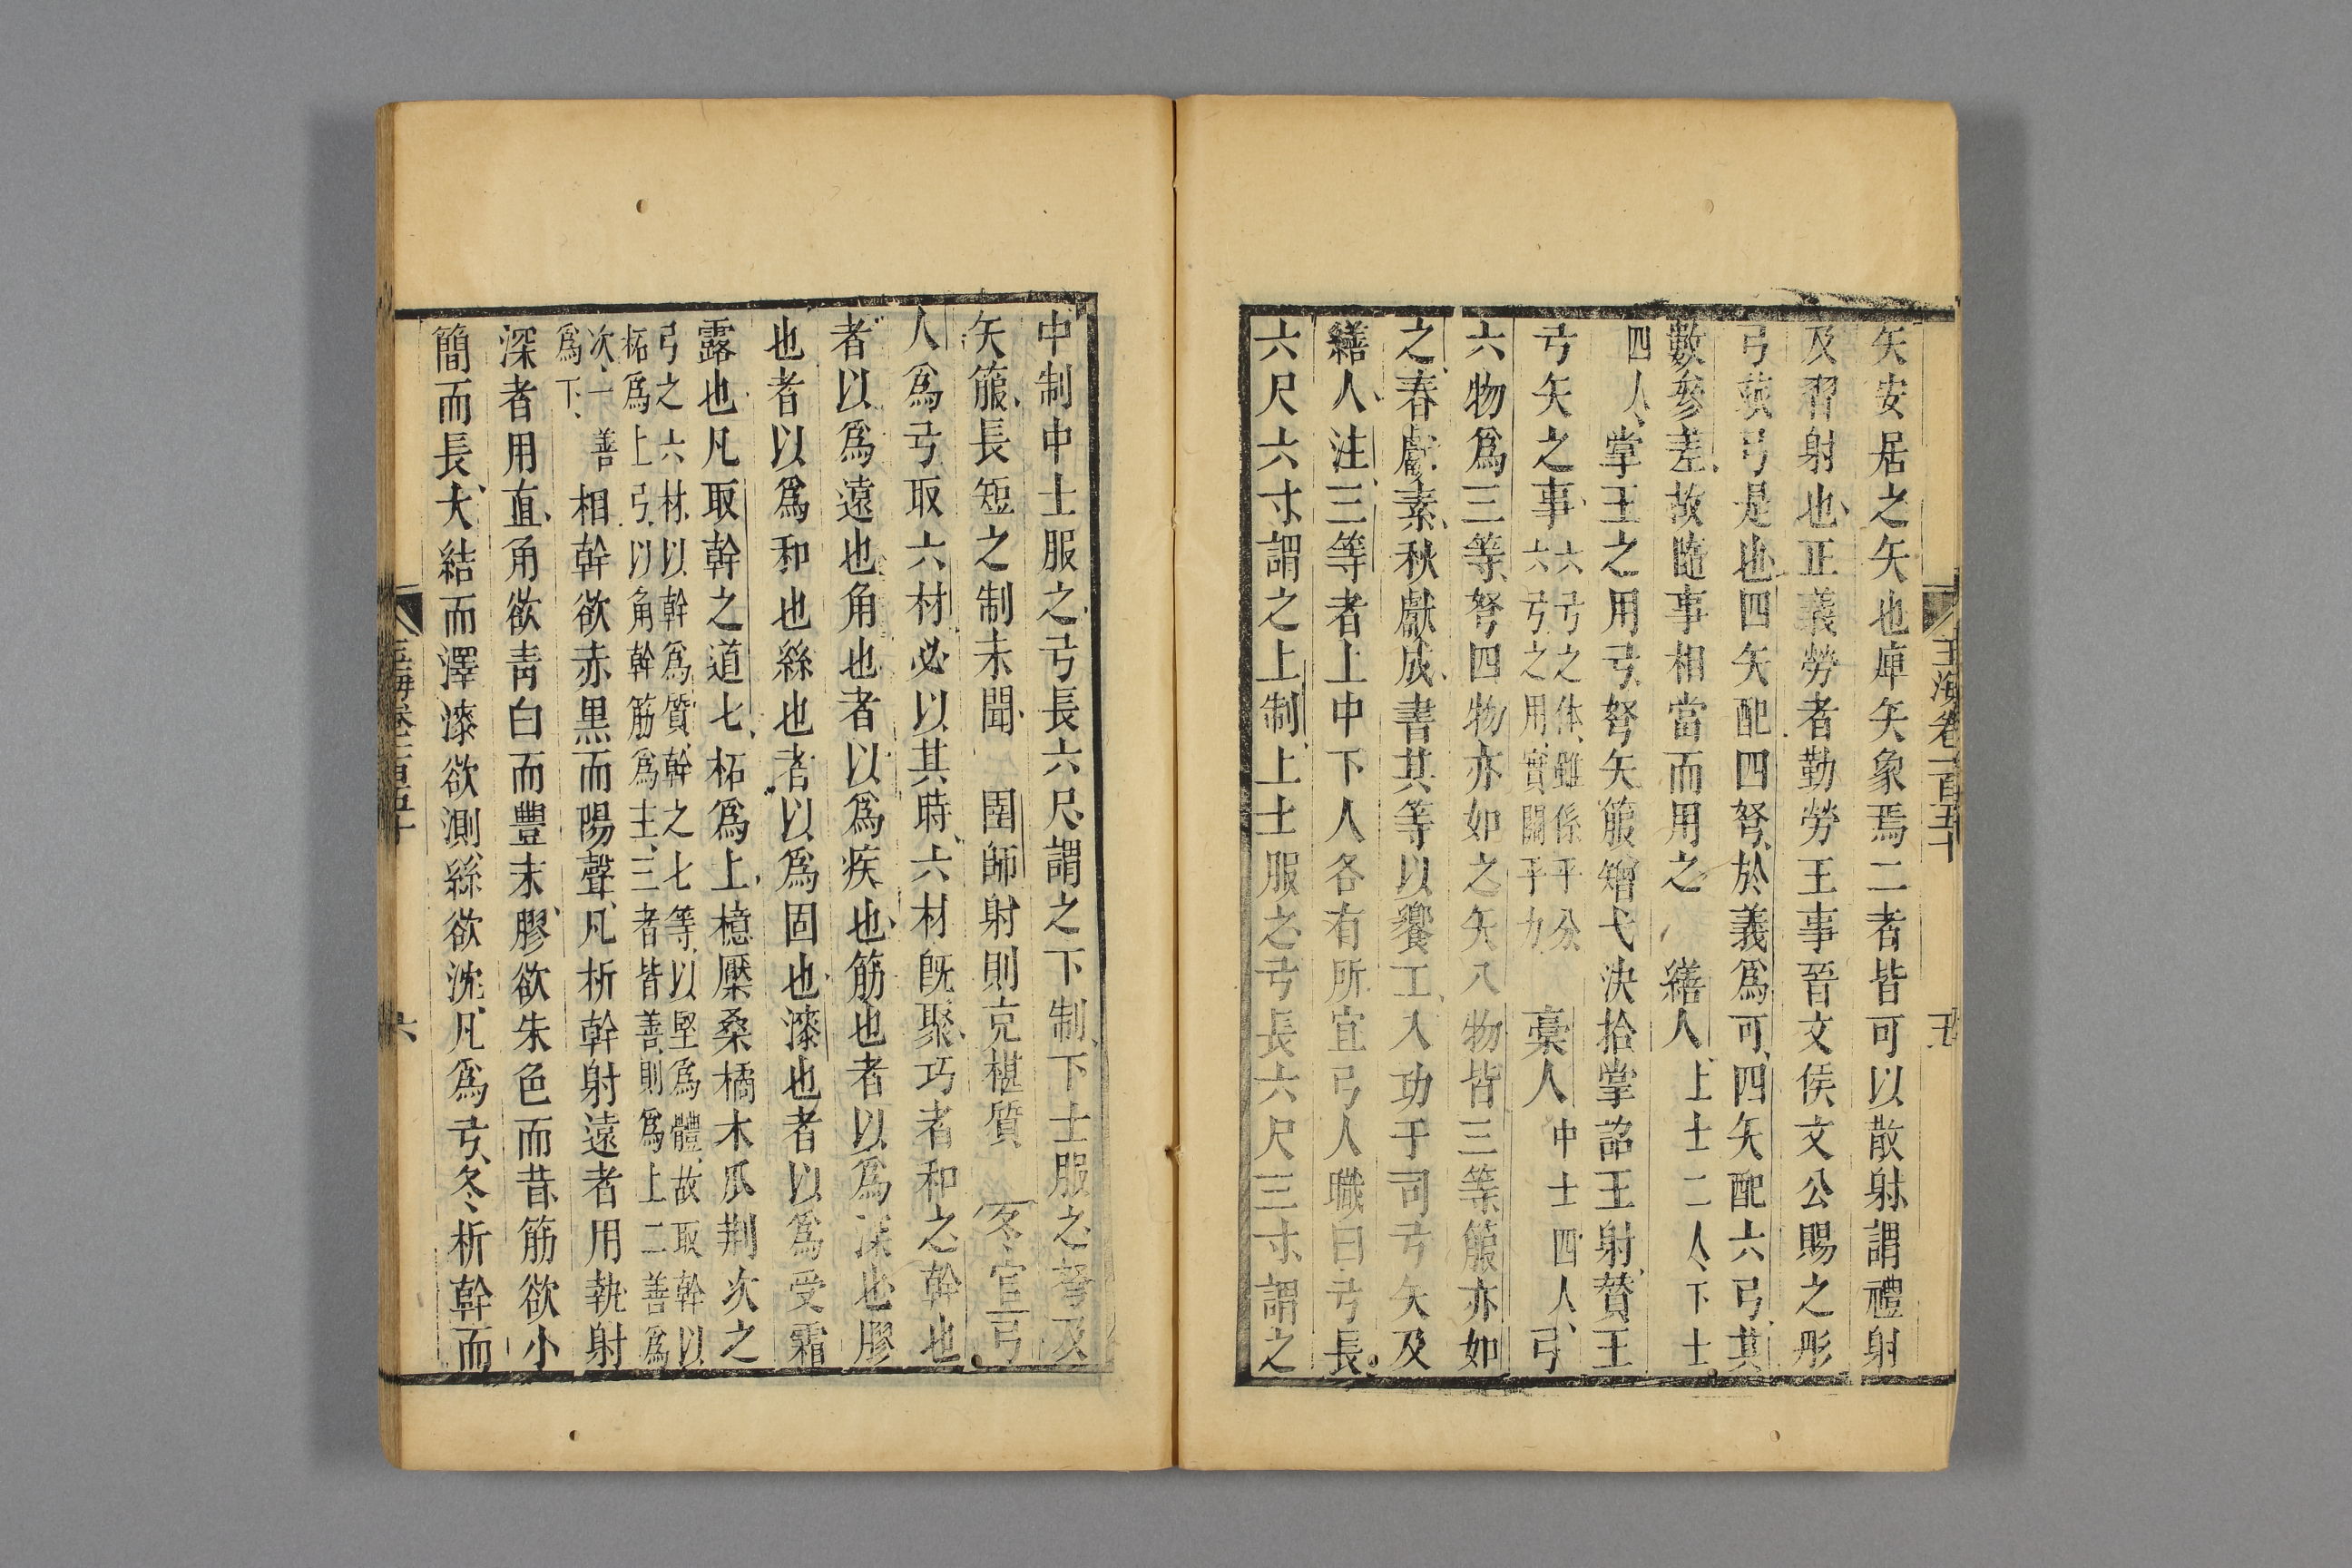 玉海卷一百五十
五
矢安居之矢也庳矢象焉二者皆可以散射謂禮射
及習射也正義勞者勤勞王事晉文侯文公賜之彤
弓玈弓是也四矢配四弩於義爲可四矢配六弓其
數參差故隨事相當而用之 繕人上士二人下士
四人掌王之用弓弩矢箙矰弋決拾掌詔王射贊王
弓矢之事六弓之体雖係乎分六弓之用實關乎力 槀人中士四人弓
六物爲三等弩四物亦如之矢八物皆三等箙亦如
之春獻素秋獻成書其等以饗工入功于司弓矢及
繕人注三等者上中下人各有所宜弓人職曰弓長
六尺六寸謂之上制上士服之弓長六尺三寸謂之
中制中士服之弓長六尺謂之下制下士服之弩及
矢箙長短之制未聞 圉師射則充椹質 冬官弓
人爲弓取六材必以其時六材既聚巧者和之幹也
者以爲遠也角也者以爲疾也筋也者以爲深也膠
也者以爲和也絲也者以爲固也漆也者以爲受霜
露也凡取幹之道七柘爲上檍檿桑橘木瓜荆次之
弓之六材以幹爲質幹之七等以堅爲體故取幹以
柘爲上弓以角幹筋爲主三者皆善則爲上二善爲
次一善
爲下 相幹欲赤黑而陽聲凡析幹射遠者用埶射
深者用直角欲青白而豐末膠欲朱色而昔筋欲小
簡而長大結而澤漆欲測絲欲沈凡爲弓冬析幹而
玉海卷一百五十
六